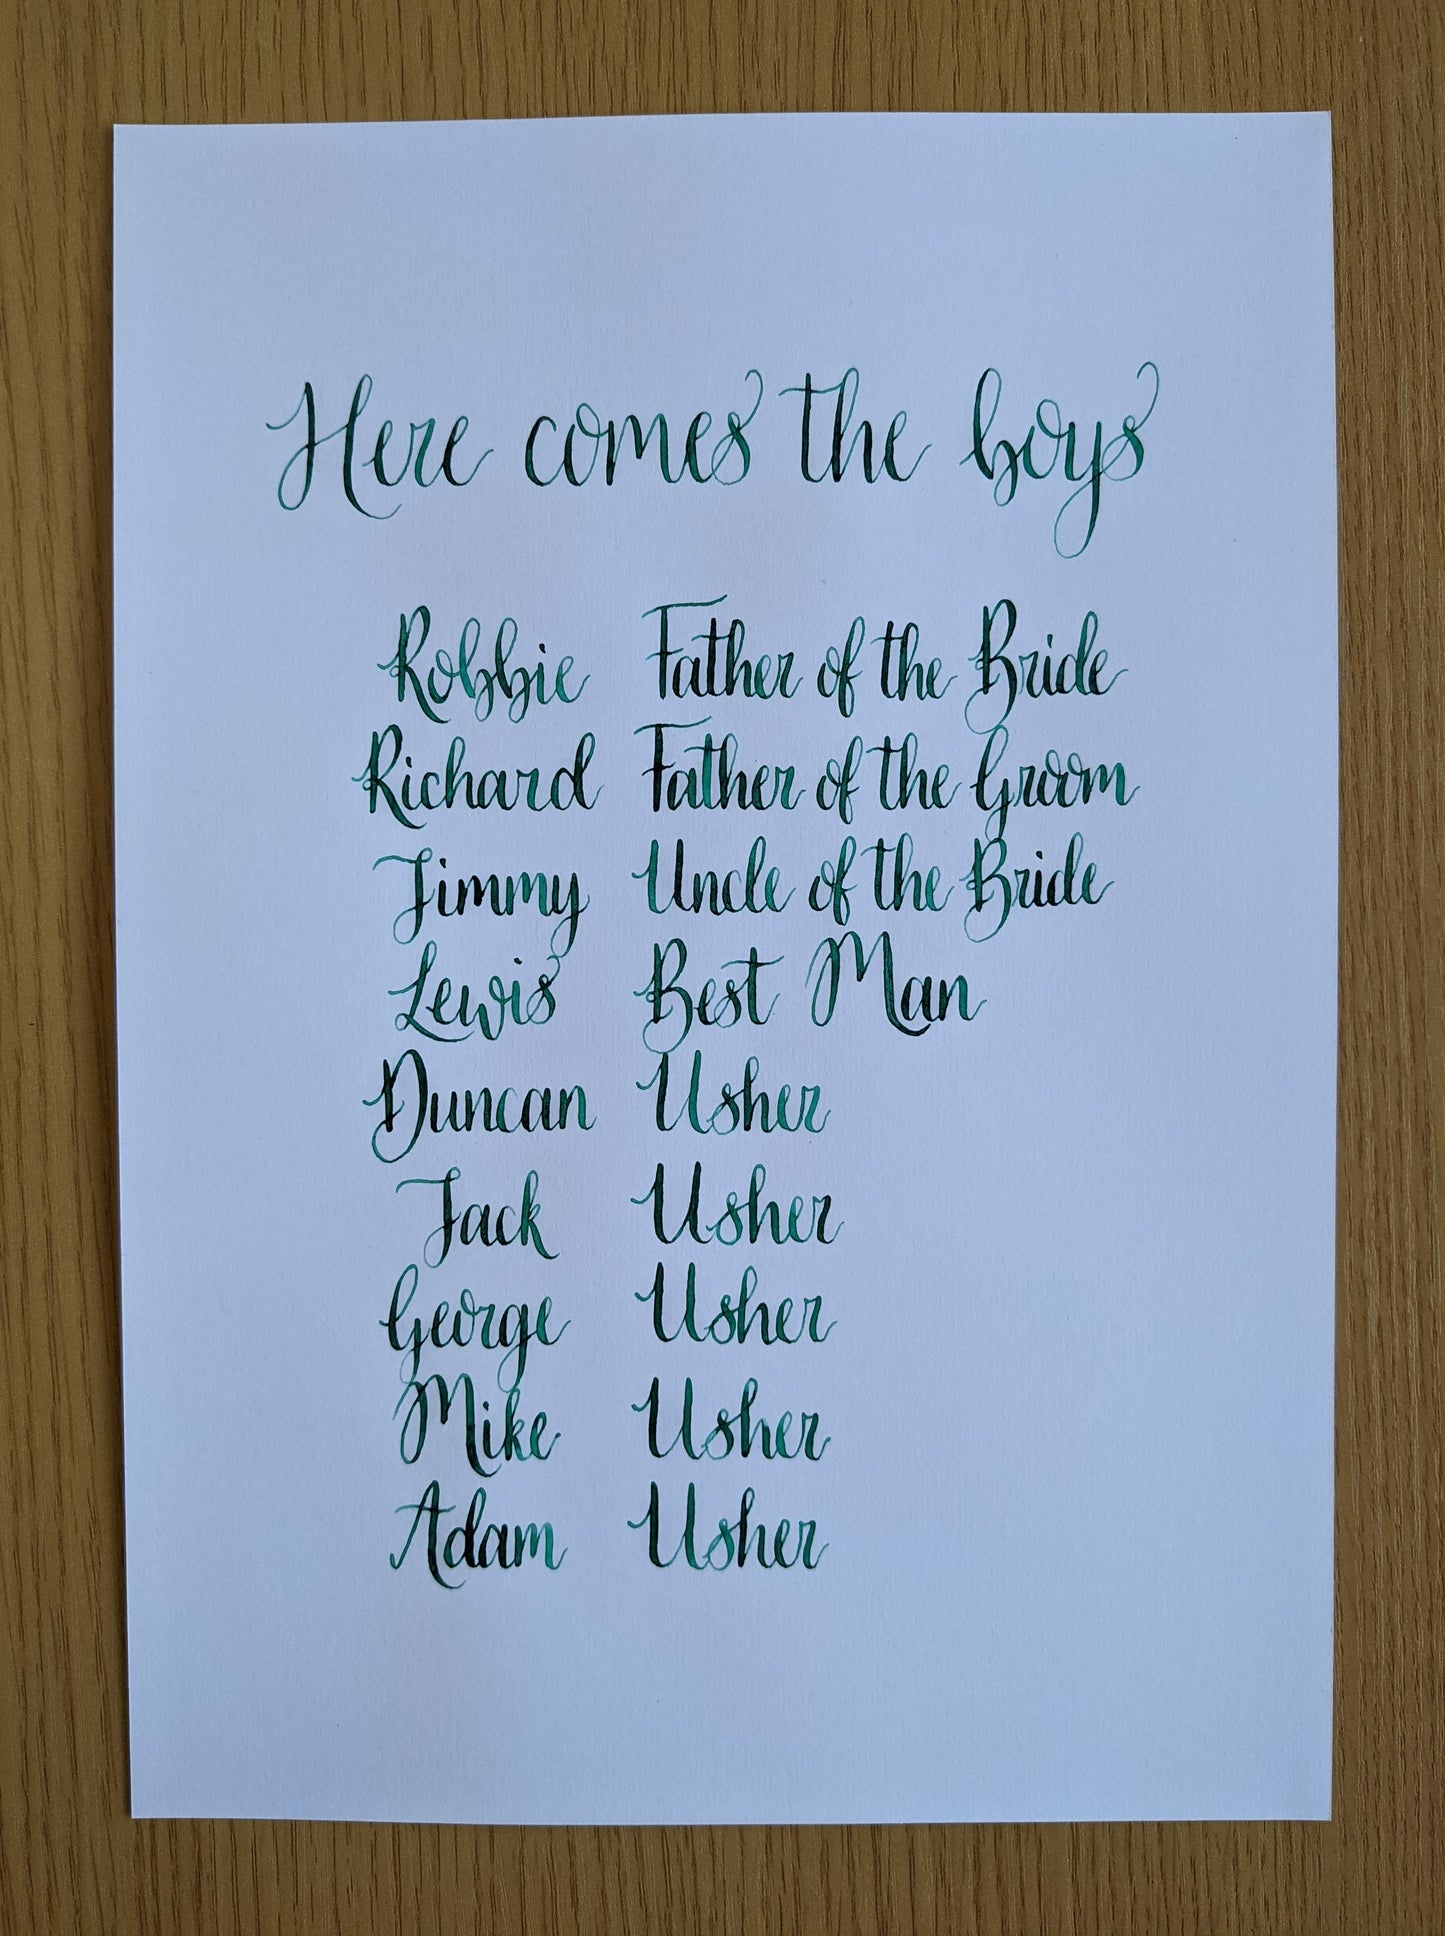 Here comes the boys
Robbie Father of the Bride
Richard Father of the Groom
Jimmy Uncle of the Bride
Lewis Best Man
Duncan Usher
Jack Usher
George Usher
Mike Usher
Adam Usher